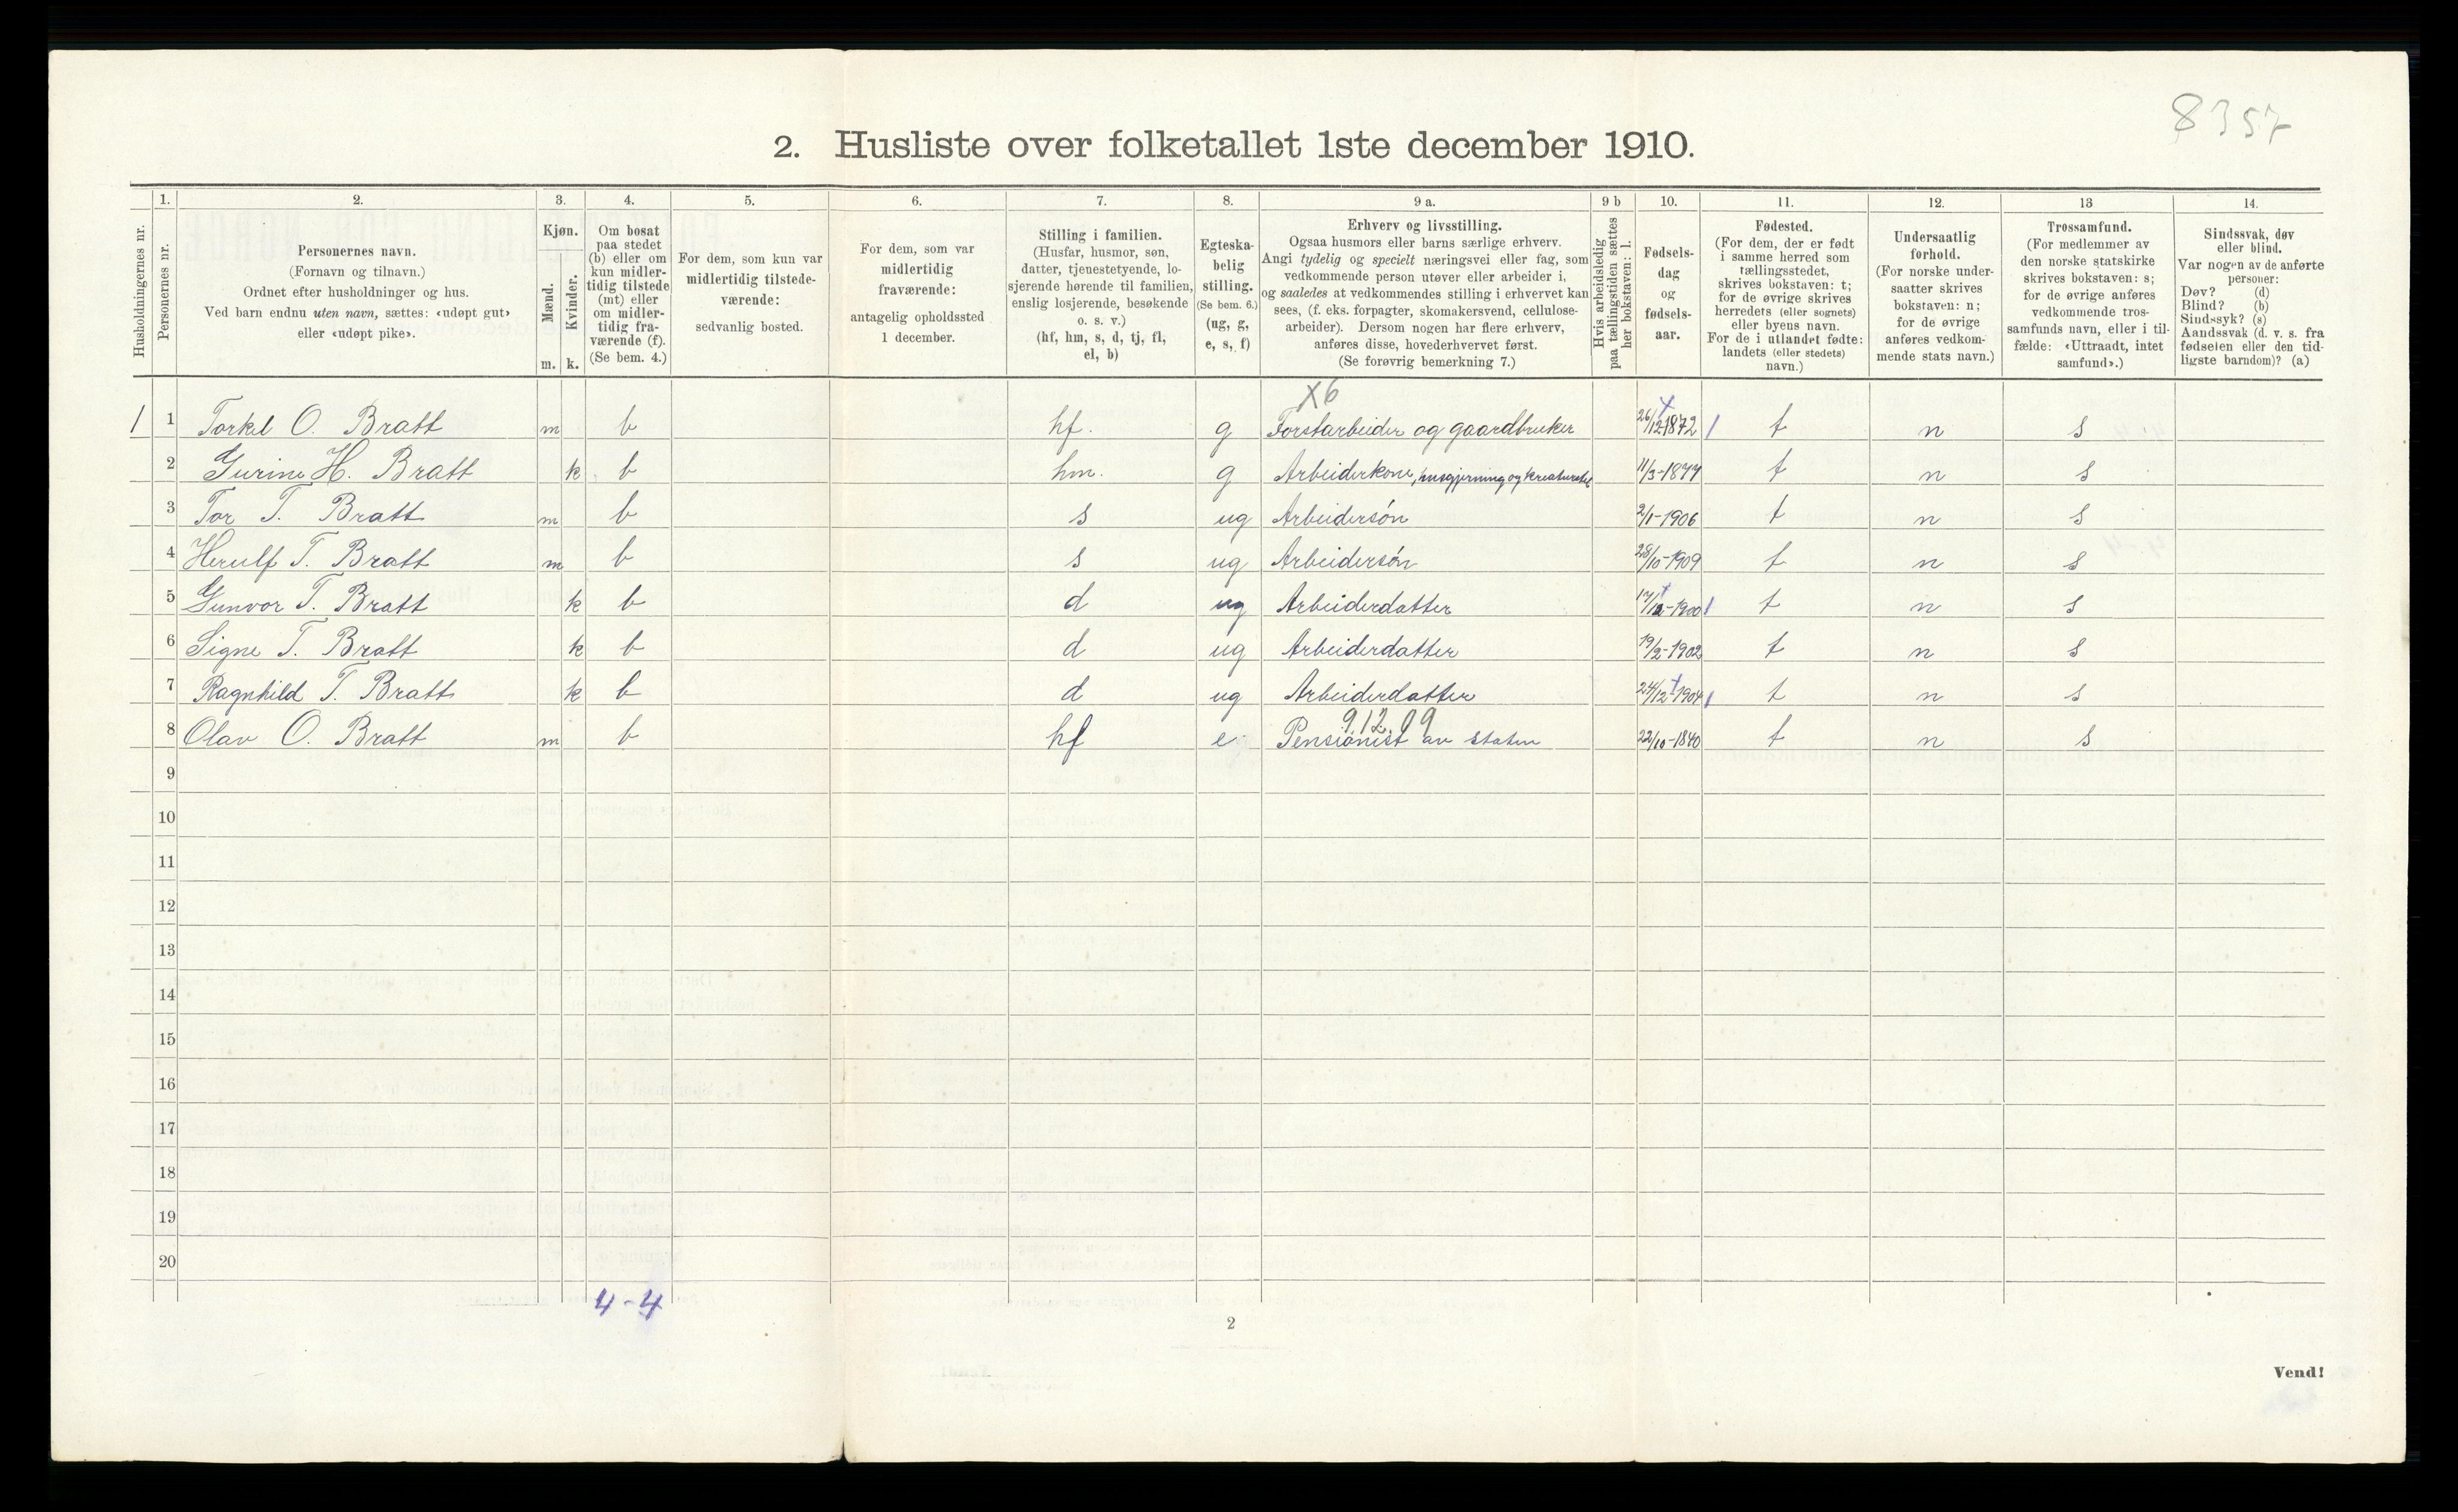 8357
2. Husliste over folketallet 1ste december 1910.
Husholdningernes nr.
1.
Personernes nr.
2.
Personernes navn.
(Fornavn og tilnavn.)
Ordnet efter husholdninger og hus.
Ved barn endnu uten navn, sættes: «udøpt gut»
eller «udøpt pike».
3.
Kjøn.
Mænd.
m.
Kvinder.
k.
4.
Om bosat
paa stedet
(b) eller om
kun midler-
tidig tilstede
(mt) eller
om midler-
tidig fra-
værende (f).
(Se bem. 4.)
5.
For dem, som kun var
midlertidig tilstede-
værende:
sedvanlig bosted.
6.
For dem, som var
midlertidig
fraværende:
antagelig opholdssted
1 december.
7.
Stilling i familien.
(Husfar, husmor, søn,
datter, tjenestetyende, lo-
sjerende hørende til familien,
enslig losjerende, besøkende
o. s. v.)
(hf, hm, s, d, tj, fl,
el, b)
8.
Egteska-
belig
stilling.
(Se bem. 6.)
(ug, g,
e, s, f)
9 a.
Erhverv og livsstilling.
Ogsaa husmors eller barns særlige erhverv.
Angi tydelig og specielt næringsvei eller fag, som
vedkommende person utøver eller arbeider i,
og saaledes at vedkommendes stilling i erhvervet kan
sees, (f. eks. forpagter, skomakersvend, cellulose-
arbeider). Dersom nogen har flere erhverv,
anføres disse, hovederhvervet først.
(Se forøvrig bemerkning 7.)
9 b
Hvis arbeidsledig
paa tællingstiden sættes
her bokstaven: l.
10.
Fødsels-
dag
og
fødsels-
aar.
11.
Fødested.
(For dem, der er født
i samme herred som
tællingsstedet,
skrives bokstaven: t;
for de øvrige skrives
herredets (eller sognets)
eller byens navn.
For de i utlandet fødte:
landets (eller stedets)
navn.)
12.
Undersaatlig
forhold.
(For norske under-
saatter skrives
bokstaven: n;
for de øvrige
anføres vedkom-
mende stats navn.)
13
Trossamfund.
(For medlemmer av
den norske statskirke
skrives bokstaven: s;
for de øvrige anføres
vedkommende tros-
samfunds navn, eller i til-
fælde: «Uttraadt, intet
samfund».)
14.
Sindssvak, døv
eller blind.
Var nogen av de anførte
personer:
Døv? (d)
Blind? (b)
Sindssyk? (s)
Aandssvak (d. v. s. fra
fødselen eller den tid-
ligste barndom)? (a)
X6
1 1 Torkel O. Bratt m b hf. g Forstarbeider og gaardbruker 26/12-1872 t n s
2 Gurine H. Bratt k b hm. g Arbeiderkone, husgjerning og kreaturstel 11/3-1877 t n s
3 Tor T. Bratt m b s ug Arbeidersøn 2/1-1906 t n s
4 Herulf T. Bratt m b s ug Arbeidersøn 28/10-1909 t n s
5 Gunvor T. Bratt k b d ug Arbeiderdatter 17/12-1900 t n s
6 Signe T. Bratt k b d ug Arbeiderdatter 19/2-1902 t n s
7 Ragnhild T. Bratt k b d ug Arbeiderdatter 24/12-1904 t n s
91209
8 Olav O. Bratt m b hf e Pensionist av staten 22/10-1840 t n s
9
10
11
12
13
14
15
16
17
18
19
20
4-4
2
Vend!